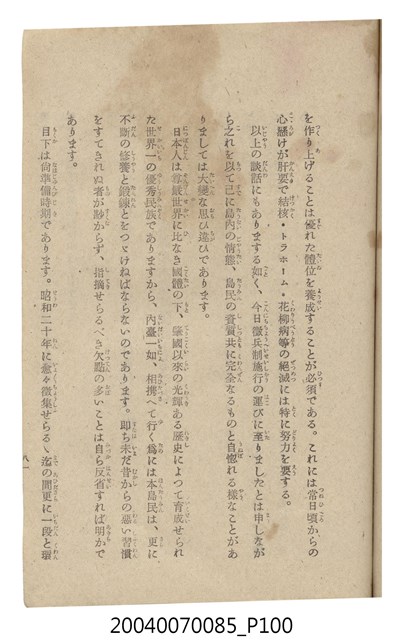 を作り上げることは優れた體位を養成することが必須である。これには常日頃からの
心懸けが肝要で結核・トラホーム・花柳病等の絶滅には特に努力を要する。
以上の談話にもありまする如く、今日徴兵制施行の運びに至りましたとは申しなが
ら之れを以て已に島内の情態、島民の資質共に完全なるものと自惚れる樣なことがあ
りましては大變な思ひ違ひであります。
日本人は尊嚴世界に比なき國體の下、肇國以來の光輝ある歷史によつて育成せられ
た世界一の優秀民族でありますから、內臺一如、相携へて行く爲には本島民は、更に
不斷の修養と鍛鍊とをつゞけねばならないのであります。卽ち未だ昔からの惡い習慣
をすてきれぬ者が尠からず、指摘せらるべき欠點の多いことは自ら反省すれば明かで
あります。
目下は尙準備時期であります。昭和二十年に愈々徴集せらるゝ迄の間更に一段と環
八一
20040070085_P100